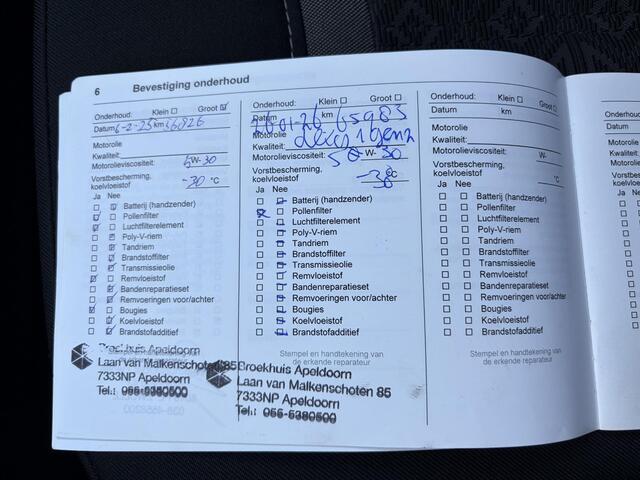 6 Bevestiging onderhoud
Onderhoud: Klein ☐ Groot ☑
Datum 6-2-25 km
Motorolie
Kwaliteit:
Motorolieviscositeit: 5W-30
Vorstbescherming,
koelvloeistof -30 °C
Ja Nee
Batterij (handzender)
Pollenfilter
Luchtfilterelement
Poly-V-riem
Tandriem
Brandstoffilter
Transmissieolie
Remvloeistof
Bandenreparatieset
Remvoeringen voor/achter
Bougies
Koelvloeistof
Brandstofadditief
Stempel en handtekening van
Broekhuis Apeldoorn
Laan van Malkenschoten 85
7333NP Apeldoorn
Tel.: 055-5380500
Onderhoud: Klein ☐ Groot ☐
Datum 26-01-26 km 65983
Motorolie
Kwaliteit:
Motorolieviscositeit: 5 W- 30
Vorstbescherming,
koelvloeistof -38 °C
Ja Nee
Batterij (handzender)
Pollenfilter
Luchtfilterelement
Poly-V-riem
Tandriem
Brandstoffilter
Transmissieolie
Remvloeistof
Bandenreparatieset
Remvoeringen voor/achter
Bougies
Koelvloeistof
Brandstofadditief
Stempel en handtekening van
de erkende reparateur
Broekhuis Apeldoorn
Laan van Malkenschoten 85
7333NP Apeldoorn
Tel.: 055-5380500
Onderhoud: Klein ☐ Groot ☐
Datum km
Motorolie
Kwaliteit:
Motorolieviscositeit: W-
Vorstbescherming,
koelvloeistof °C
Ja Nee
Batterij (handzender)
Pollenfilter
Luchtfilterelement
Poly-V-riem
Tandriem
Brandstoffilter
Transmissieolie
Remvloeistof
Bandenreparatieset
Remvoeringen voor/achter
Bougies
Koelvloeistof
Brandstofadditief
Stempel en handtekening van
de erkende reparateur